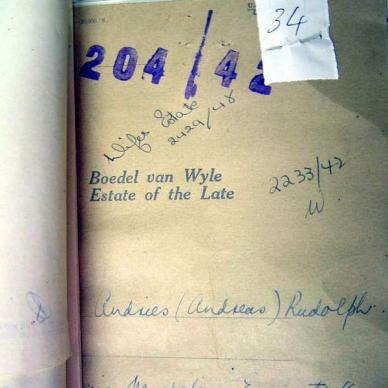 34
204/42
Wifes Estate
2429/48
Boedel van Wyle
Estate of the Late
2233/42
W.
Andries (Andreas) Rudolph.